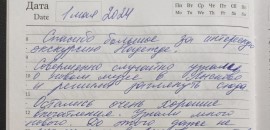 Дата
Date
1 мая 2024
Пн Вт Ср Чт Пт Сб Вс
Mo Tu We Th Fr Sa Su
8 Спасибо большое за интересную
экскурсию
9 Совершенно случайно узнали
о новом музее в
и решили заглянуть сюда
Остались очень хорошие
впечатления. Узнали много
нового. До этого даже не